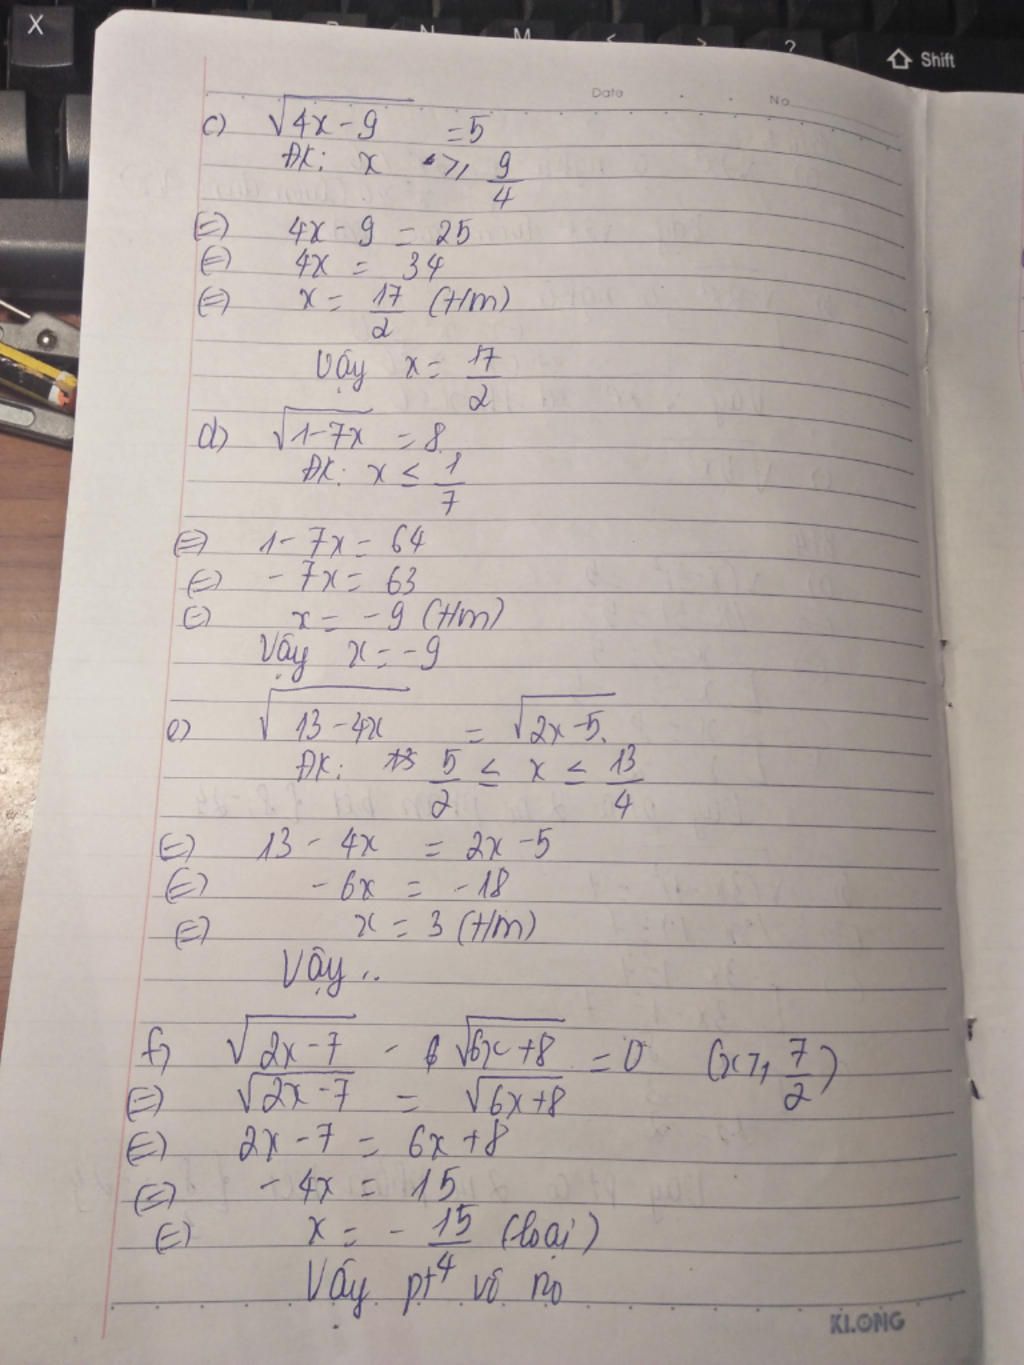 X
N M < > ?
Shift
Date No
c) √(4x - 9) = 5
ĐK: x ⩾ 9/4
⇔ 4x - 9 = 25
⇔ 4x = 34
⇔ x = 17/2 (t/m)
Vậy x = 17/2
d) √(1 - 7x) = 8
ĐK: x ≤ 1/7
⇔ 1 - 7x = 64
⇔ - 7x = 63
⇔ x = - 9 (t/m)
Vậy x = - 9
e) √(13 - 4x) = √(2x - 5).
ĐK: 5/2 ≤ x ≤ 13/4
⇔ 13 - 4x = 2x - 5
⇔ - 6x = - 18
⇔ x = 3 (t/m)
Vậy ..
f) √(2x - 7) - √(6x + 8) = 0 (x ⩾ 7/2)
⇔ √(2x - 7) = √(6x + 8)
⇔ 2x - 7 = 6x + 8
⇔ - 4x = 15
⇔ x = - 15/4 (loại)
Vậy pt vô no
KLONG